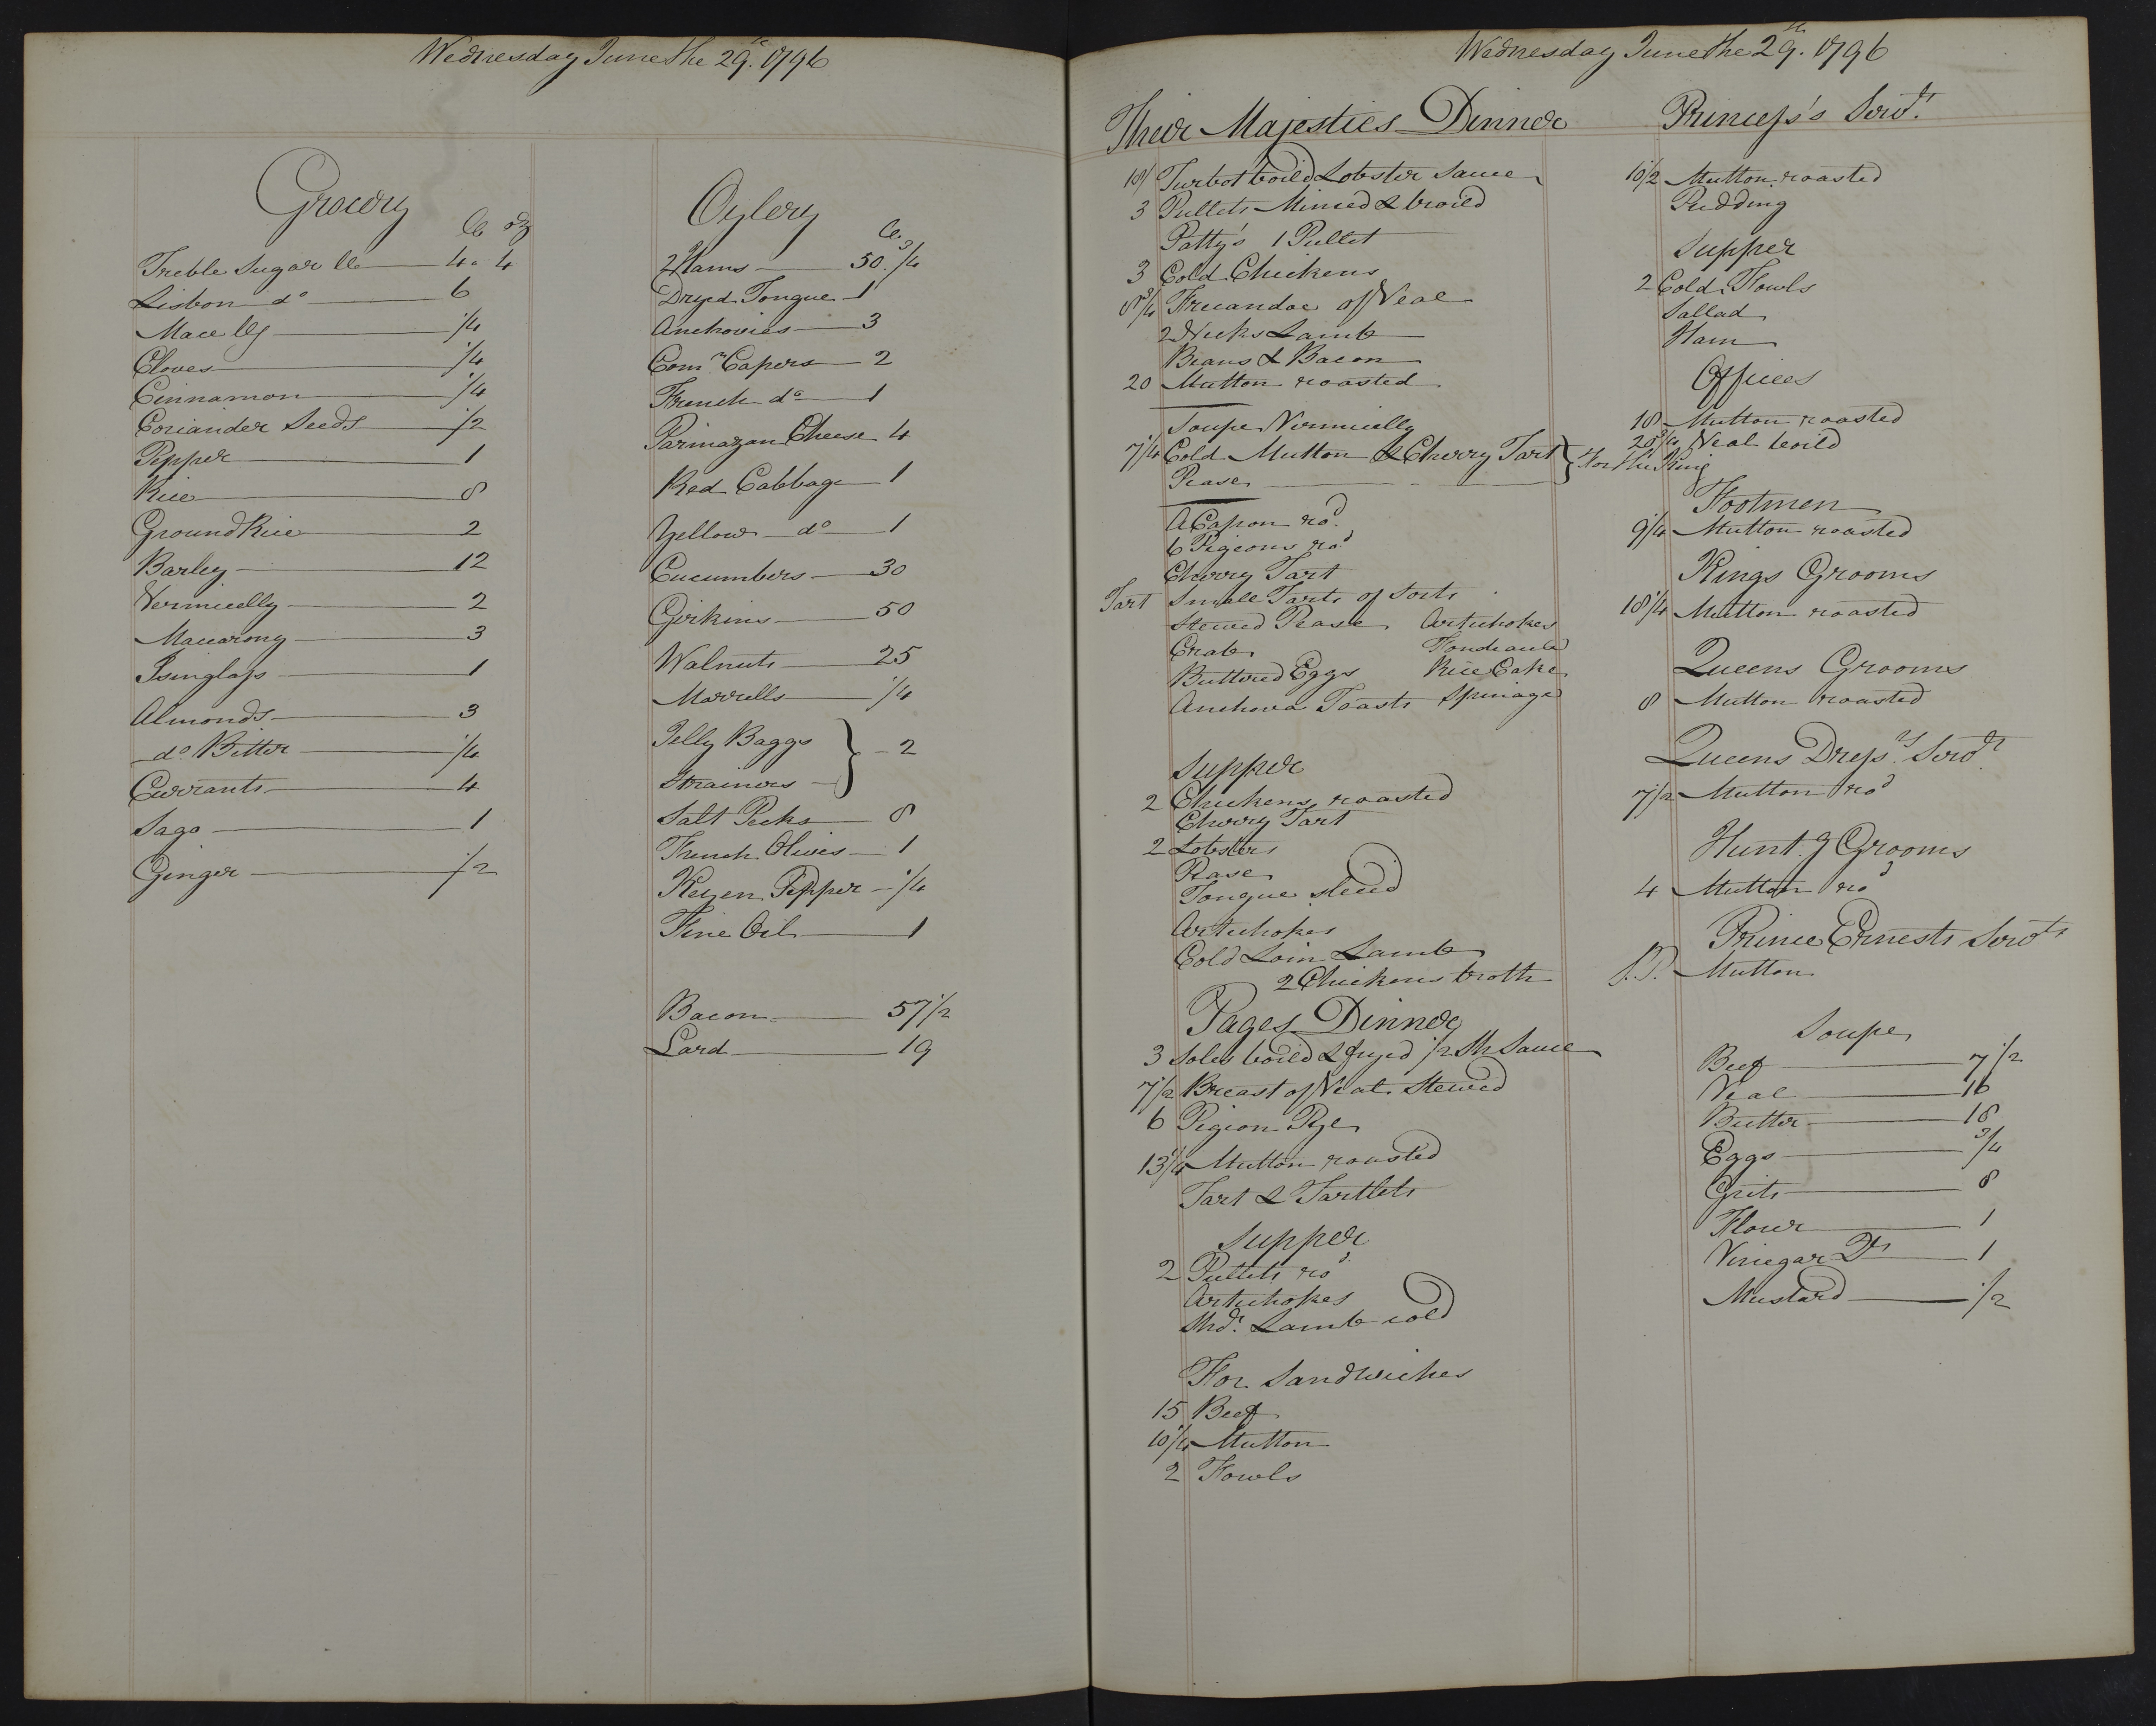 Wednesday June the 29th. 1796
Grocery
lb oz
Treble Sugar lb 4 " 4
Lisbon do 6
Mace 1/4
Cloves 1/4
Cinnamon 1/4
Coriander Seeds 1/2
Pepper 1
Rice 8
Ground Rice 2
Barley 12
Vermicelly 2
Macarony 3
Isinglass 1
Almonds 3
do Bitter 1/4
Currants 4
Sago 1
Ginger 1/2
Oylery
lb.
2 Hams 50 3/4
Dryed Tongue 1
Anchovies 3
Comn. Capers 2
French do 1
Parmazan Cheese 4
Red Cabbage 1
Yellow do 1
Cucumbers 30
Girkins 50
Walnuts 25
Morrells 1/4
Jelly Baggs } 2
Strainers
Salt Pecks 8
French Olives 1
Keyen Pepper 1/4
Fine Oil 1
Bacon 57 1/2
Lard 19
Wednesday June the 29th. 1796
Their Majesties Dinner
Turbot boild Lobster Sauce
3 Pullets Minced & broild
Patty's 1 Pullet
3 Cold Chickens
8 3/4 Fricandoe of Veal
2 Necks Lamb
Beans & Bacon
20 Mutton roasted
Soupe Vermicelly
7 1/4 Cold Mutton & Cherry Tart } For the King
Pease
A Capon rod.
6 Pigeons rod.
Cherry Tart
Tart Small Tarts of Sorts
Stewed Pease Artichokes
Crab
Buttered Eggs Rice Cake
Anchova Toasts Spinage
Supper
2 Chickens roasted
Cherry Tart
2 Lobsters
Pease
Tongue slced
Artichokes
Cold Loin Lamb
2 Chickens broth
Pages Dinner
3 Soles boild & fryed 1/2 Sh Sauce
7 1/2 Breast of Veal Stewed
6 Pigion Pye
13 1/4 Mutton roasted
Tart & Tartlets
Supper
2 Pullets rod.
Artichokes
Shdr. Lamb cold
For Sandwiches
15 Beef
10 1/4 Mutton
2 Fowls
Princess's Servts.
10 1/2 Mutton roasted
Pudding
Supper
2 Cold Fowls
Sallad
Ham
Offices
18 Mutton roasted
28 3/4 Veal boild
Footmen
9 1/4 Mutton roasted
Kings Grooms
18 1/4 Mutton roasted
Queens Grooms
8 Mutton roasted
Queens Dressrs. Servts.
7 1/2 Mutton rod
Huntg Grooms
4 Mutton rod
Prince Ernests Servts
Mutton
Soupe
Beef 7 1/2
Veal 16
Butter 18
Eggs 3/4
Grits 8
Flour 1
Vinegar Qts 1
Mustard 1/2